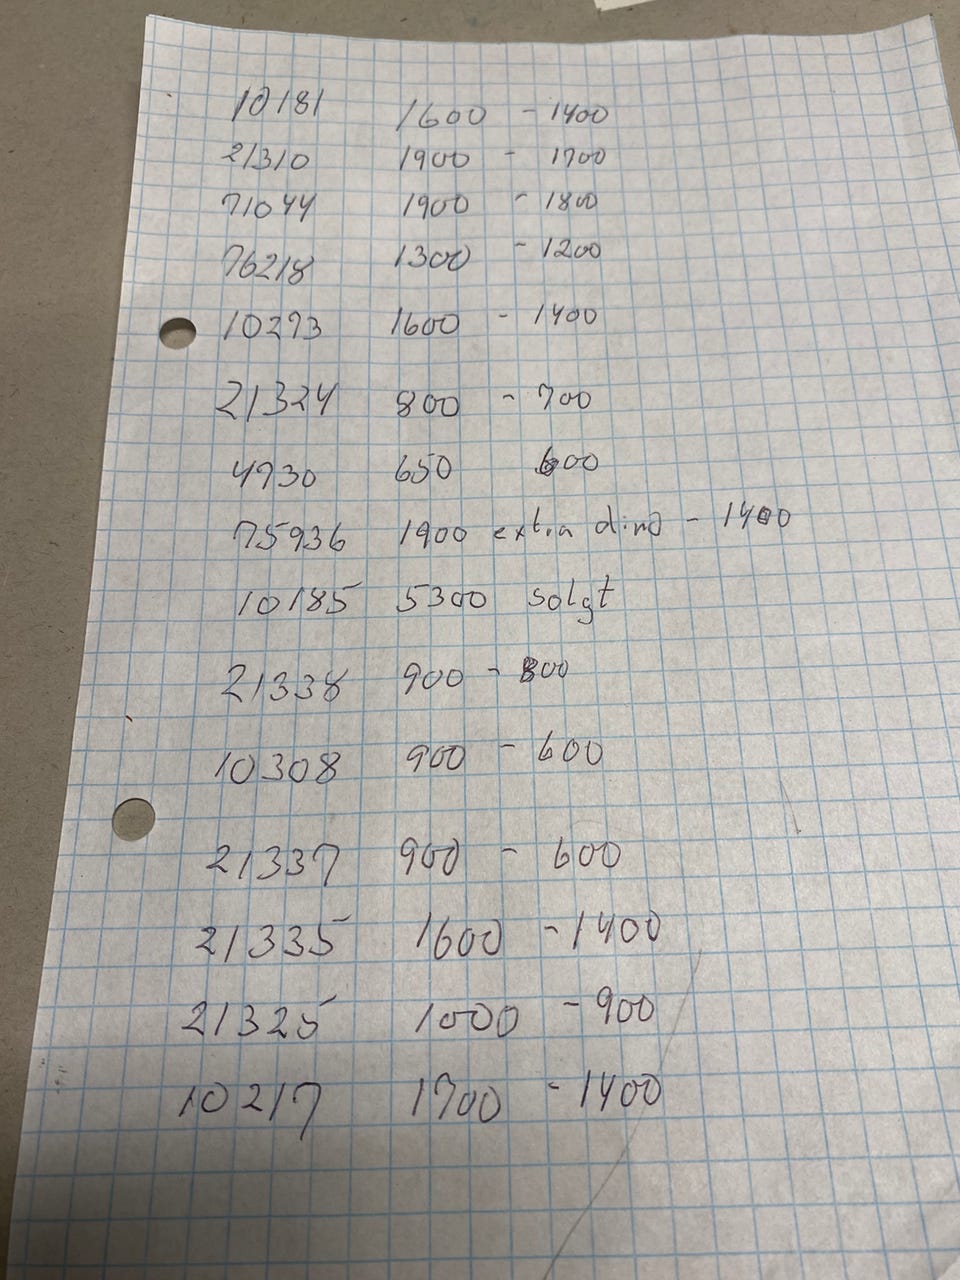 10181 1600 - 1400
21310 1900 - 1700
71044 1900 - 1800
76218 1300 - 1200
10293 1600 - 1400
21324 800 - 700
4930 650 600
75936 1900 extra dino - 1400
10185 5300 solgt
21338 900 - 800
10308 900 - 600
21337 900 - 600
21335 1600 - 1400
21325 1000 - 900
10217 1700 - 1400